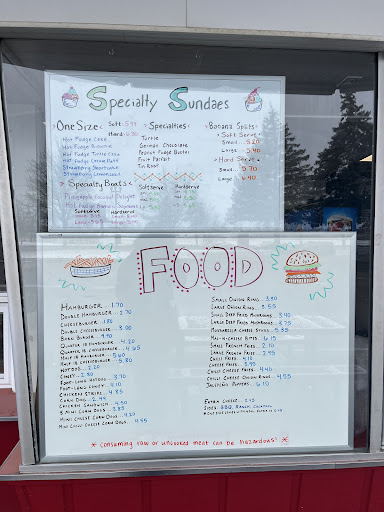 Specialty Sundaes
One Size
Soft 5.95
Hard 6.30
Hot Fudge Cake
Hot Fudge Brownie
Hot Fudge Turtle Cake
Strawberry Shortcake
Specialties
Turtle
German Chocolate
Peanut Fudge Buster
Fruit Parfait
Tin Roof
Softserve
Hardserve
Banana Splits
Soft Serve
Small... 5.20
Large... 5.90
Hard Serve
Small... 5.70
Large... 6.40
Specialty Boats
Pineapple Coconut Delight
Hot Fudge Banana
Softserve
Hardserve
FOOD
Hamburger... 1.70
Double Hamburger... 2.70
Cheeseburger 1.85
Double Cheeseburger 3.00
Quarter lb Hamburger... 4.20
Quarter lb Cheeseburger 4.65
Half lb Hamburger... 5.60
Half lb Cheeseburger... 5.80
Hotdog... 2.20
Coney... 2.80
Foot-Long Hotdog 3.70
Foot-Long Coney 4.10
Chicken Strips... 4.85
Corn Dog... 2.95
Chicken Sandwich... 4.50
8 Mini Corn Dogs... 3.85
Mini Corn Dogs... 4.90
Mini Chili Cheese Corn Dogs... 4.55
Small Onion Ring 3.80
Large Onion Ring 5.55
Small Deep Fried Mushrooms 3.40
Large Deep Fried Mushrooms 3.75
Mozzarella Cheese Sticks 5.85
Mac-n-Cheese Bites 6.10
Small French Fries 2.10
Large French Fries 2.95
Chili Fries 4.10
Cheese Fries 3.95
Chili Cheese Fries 4.40
Chili Cheese Onion Ring 4.55
Jalapeño Poppers... 6.10
Extra Cheese... 2.45
Sides: BBQ, Ranch, Cocktail
* Consuming raw or uncooked meat can be hazardous! *